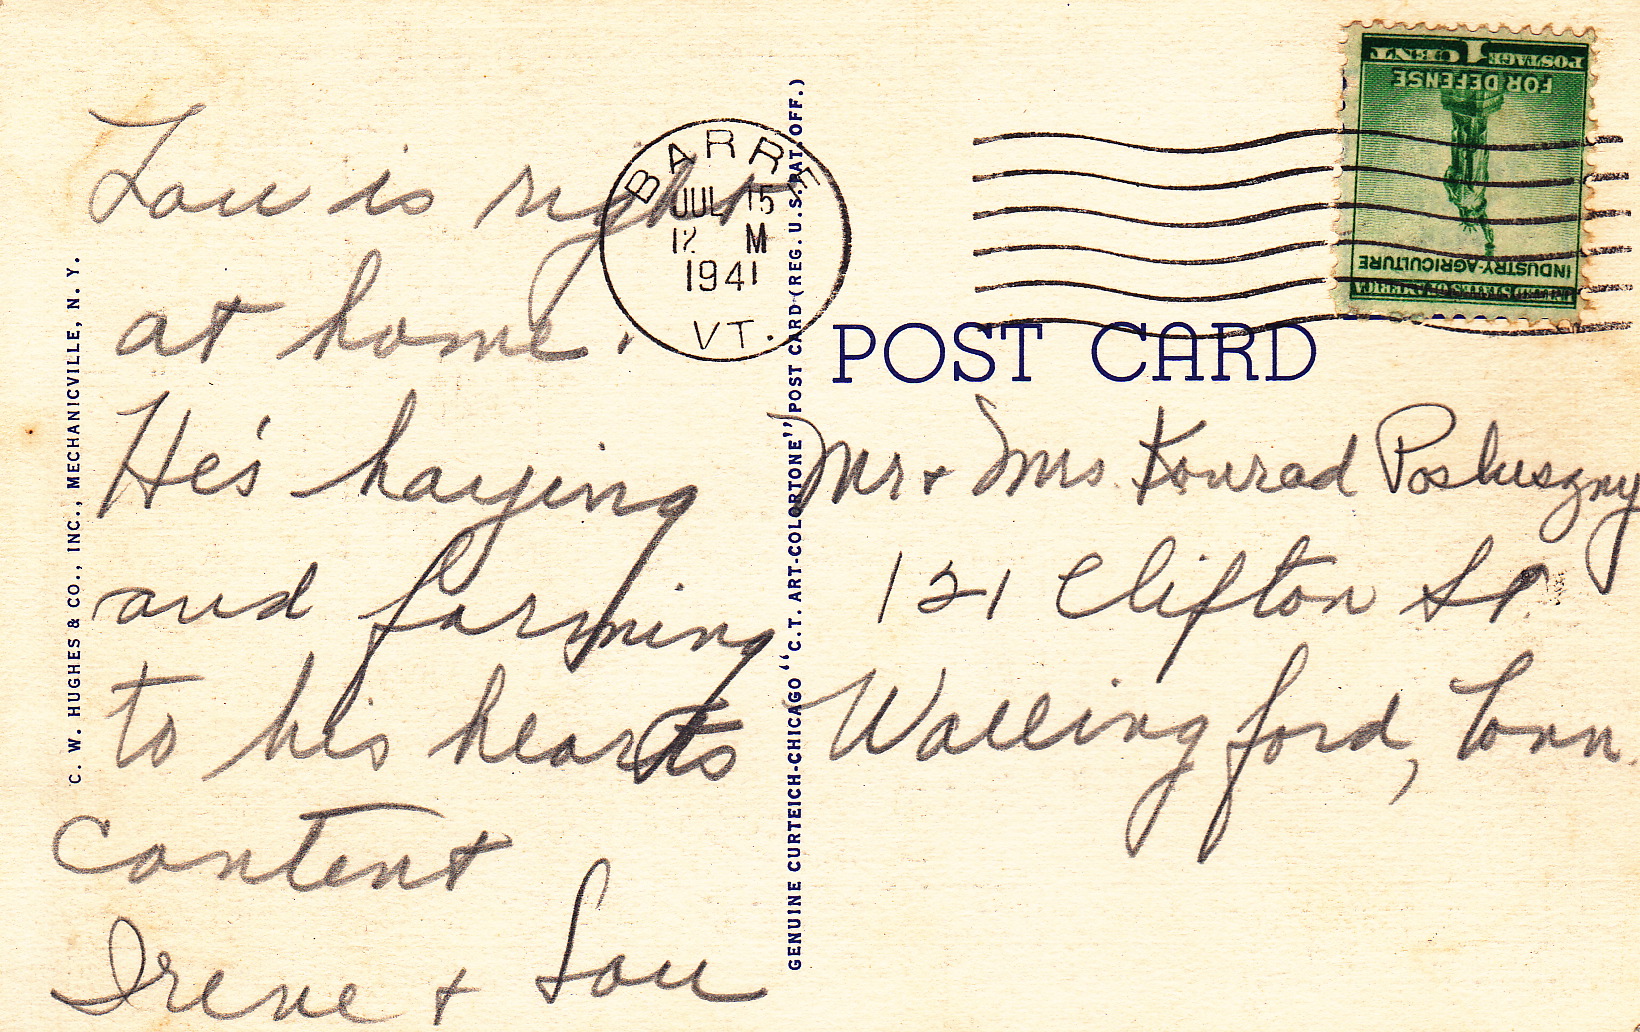 Lou is right
at home.
He's haying
and farming
to his hearts
content
Irene + Lou
C. W. HUGHES & CO., INC., MECHANICVILLE, N. Y.
GENUINE CURTEICH-CHICAGO "C.T. ART-COLORTONE" POST CARD (REG. U.S. PAT. OFF.)
BARRE
JUL 15
12 M
1941
VT.
1 CENT
POSTAGE
FOR DEFENSE
INDUSTRY-AGRICULTURE
UNITED STATES OF AMERICA
POST CARD
Mr + Mrs. Konrad Posluszny
121 Clifton St
Wallingford, Conn.